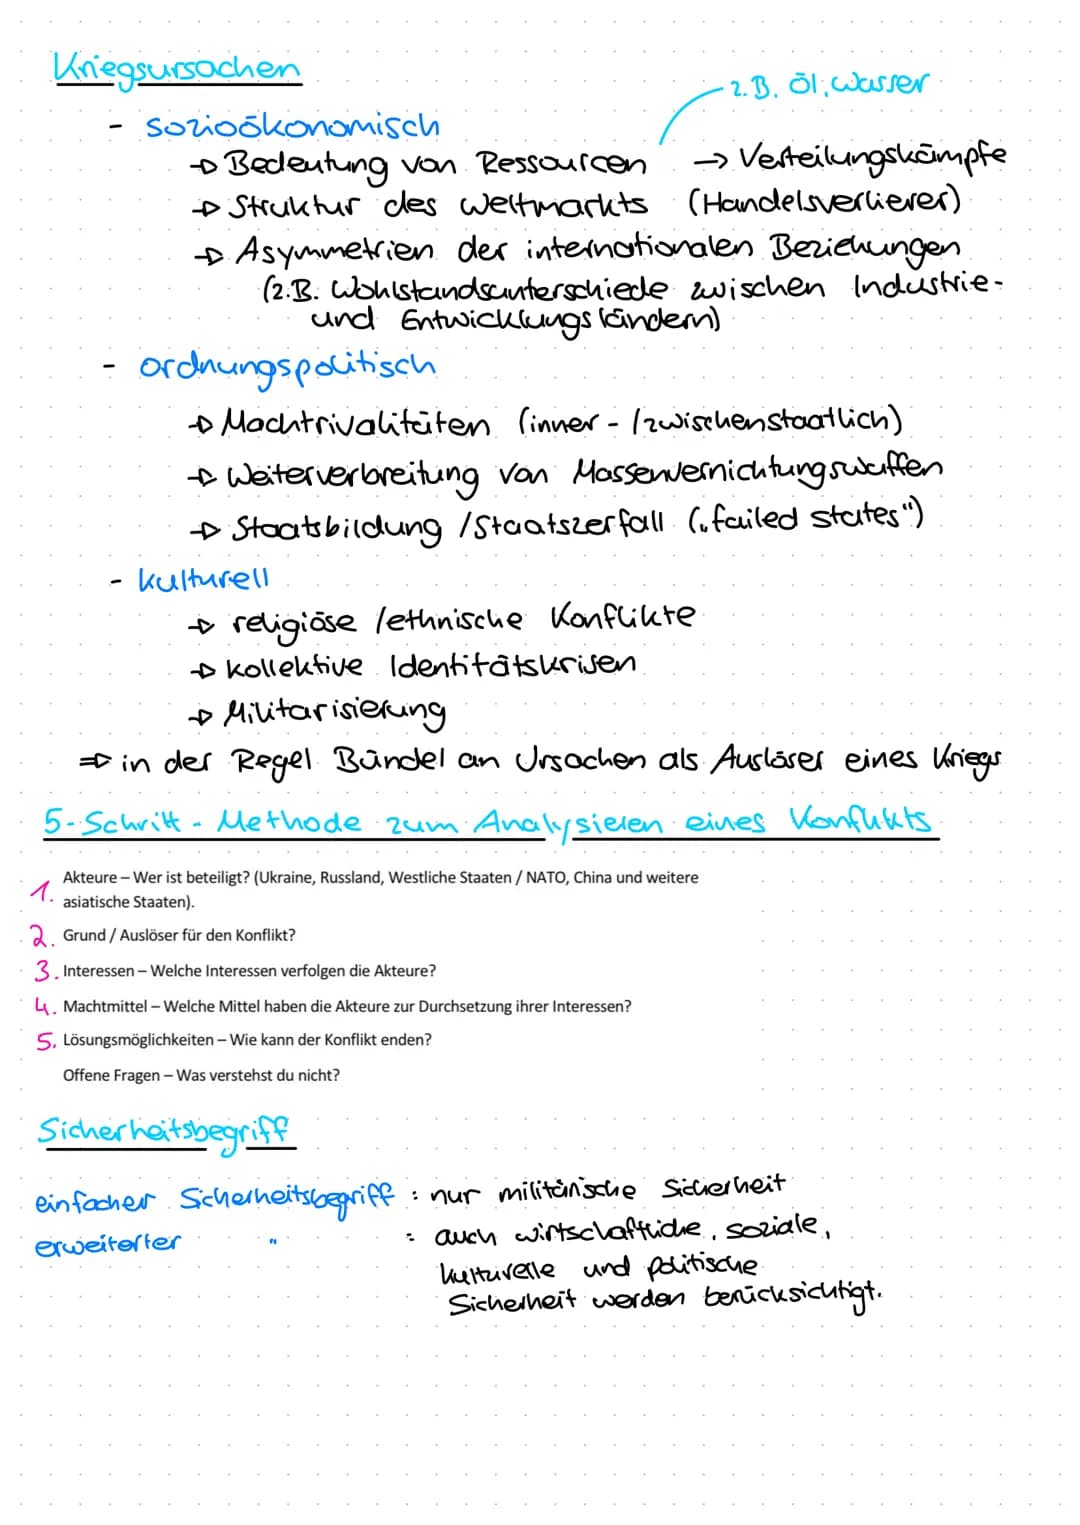 Kriegsursachen
z.B. Öl, Wasser
- sozioökonomisch
→ Bedeutung von Ressourcen → Verteilungskämpfe
→ Struktur des Weltmarkts (Handelsverlierer)
→ Asymmetrien der internationalen Beziehungen
(z.B. Wohlstandsunterschiede zwischen Industrie-
und Entwicklungsländern)
- ordnungspolitisch
→ Machtrivalitäten (inner-/zwischenstaatlich)
→ Weiterverbreitung von Massenvernichtungswaffen
→ Staatsbildung /Staatszerfall („failed states")
- kulturell
→ religiöse /ethnische Konflikte
→ kollektive Identitätskrisen
→ Militarisierung
⇒ in der Regel Bündel an Ursachen als Auslöser eines Kriegs
5-Schritt-Methode zum Analysieren eines Konflikts
1. Akteure – Wer ist beteiligt? (Ukraine, Russland, Westliche Staaten / NATO, China und weitere
asiatische Staaten).
2. Grund / Auslöser für den Konflikt?
3. Interessen – Welche Interessen verfolgen die Akteure?
4. Machtmittel – Welche Mittel haben die Akteure zur Durchsetzung ihrer Interessen?
5. Lösungsmöglichkeiten – Wie kann der Konflikt enden?
Offene Fragen – Was verstehst du nicht?
Sicherheitsbegriff
einfacher Sicherheitsbegriff : nur militärische Sicherheit
erweiterter " : auch wirtschaftliche, soziale,
kulturelle und politische
Sicherheit werden berücksichtigt.